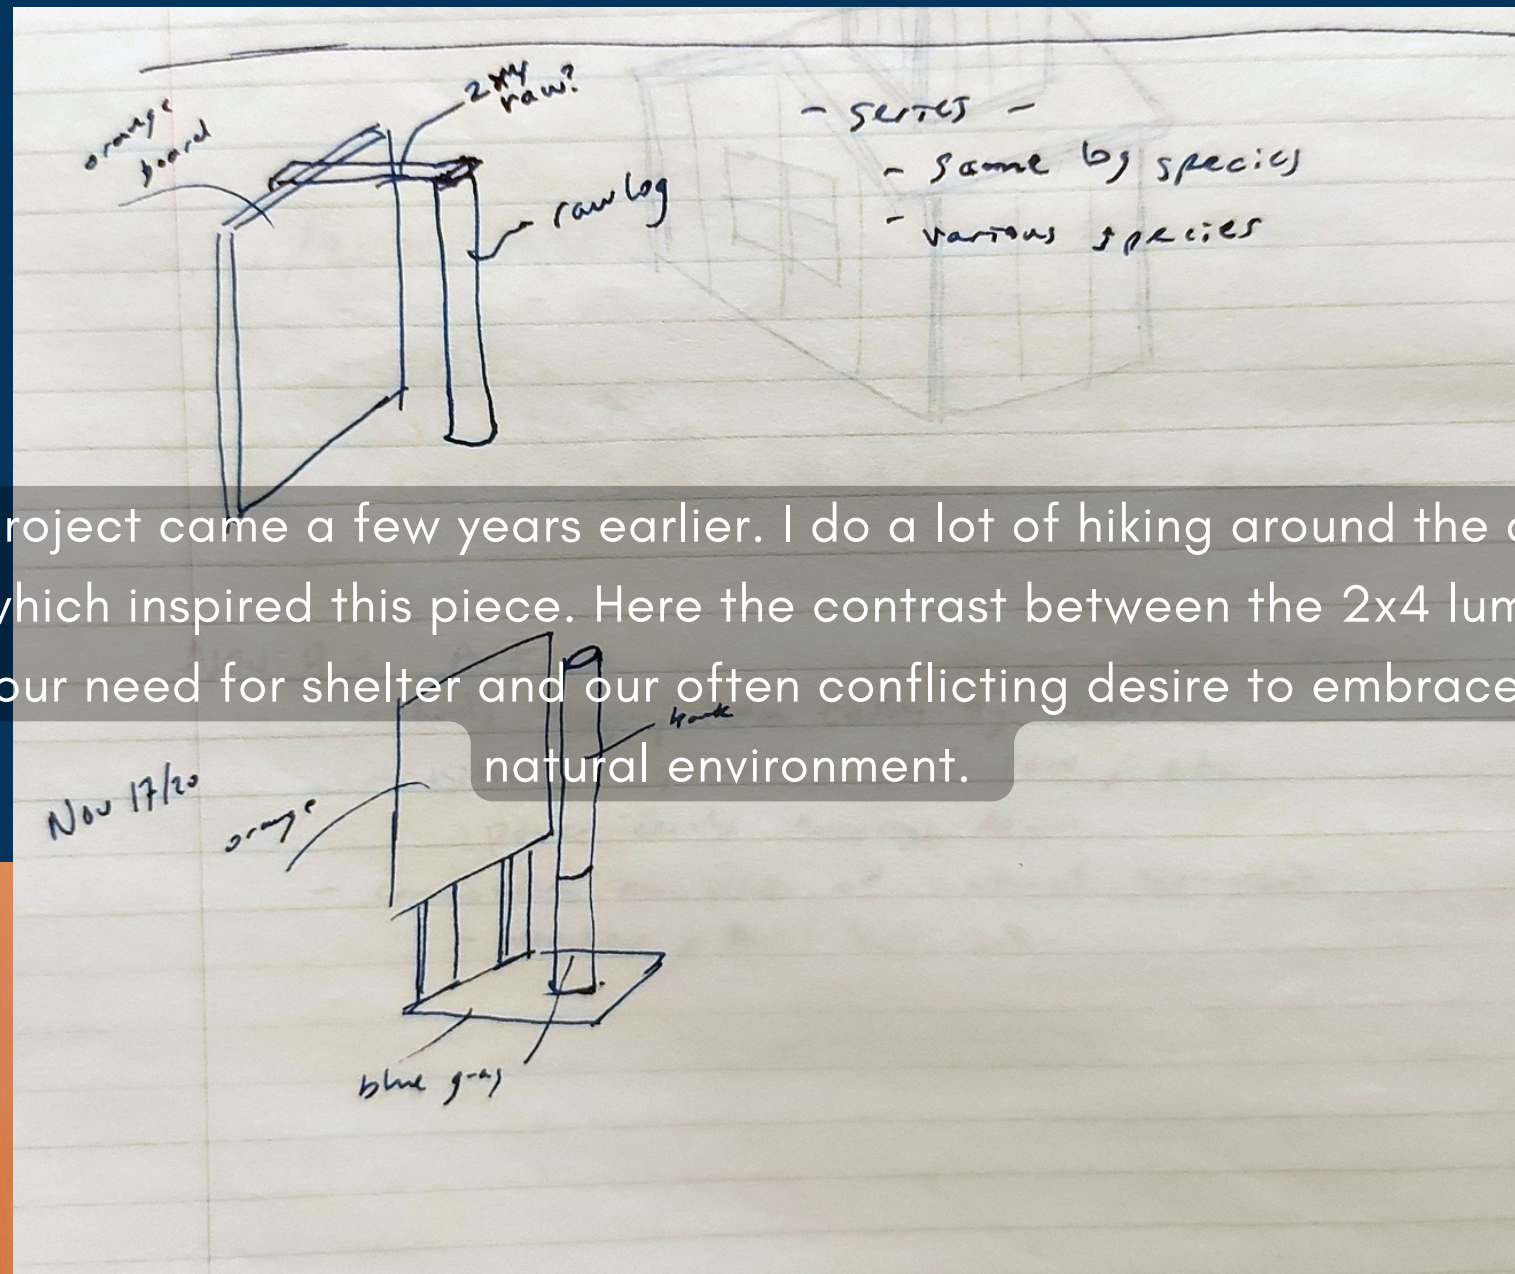 2x4
raw?
orange
board
raw log
- series -
- same log species
- various species
roject came a few years earlier. I do a lot of hiking around the
which inspired this piece. Here the contrast between the 2x4 lum
our need for shelter and our often conflicting desire to embrace
natural environment.
Nov 17/20
orange
blue gray